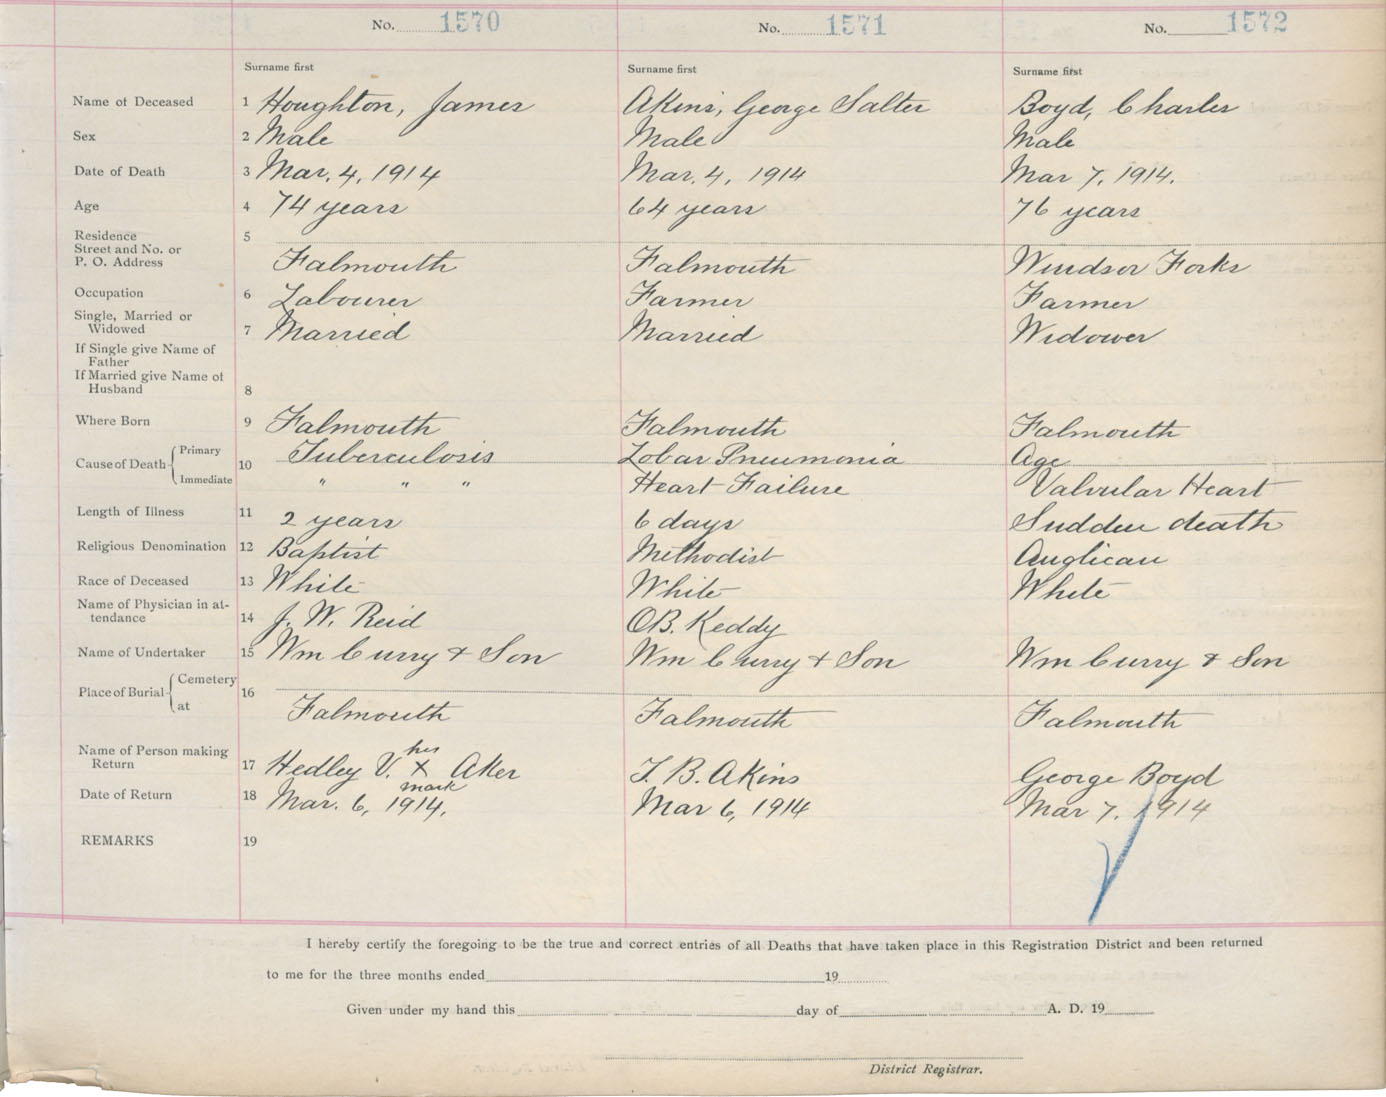 No. 1570 No. 1571 No. 1572
Surname first Surname first Surname first
Name of Deceased 1 Houghton, James Akins, George Salter Boyd, Charles
Sex 2 Male Male Male
Date of Death 3 Mar. 4, 1914 Mar. 4, 1914 Mar 7, 1914.
Age 4 74 years 64 years 76 years
Residence 5
Street and No. or
P. O. Address Falmouth Falmouth Windsor Forks
Occupation 6 Labourer Farmer Farmer
Single, Married or
Widowed 7 Married Married Widower
If Single give Name of
Father
If Married give Name of
Husband 8
Where Born 9 Falmouth Falmouth Falmouth
Cause of Death Primary 10 Tuberculosis Lobar Pneumonia Age
Immediate " " " Heart Failure Valvular Heart
Length of Illness 11 2 years 6 days Sudden death
Religious Denomination 12 Baptist Methodist Anglican
Race of Deceased 13 White White White
Name of Physician in at-
tendance 14 J. W. Reid O.B. Keddy
Name of Undertaker 15 Wm Curry & Son Wm Curry & Son Wm Curry & Son
Place of Burial Cemetery 16
at Falmouth Falmouth Falmouth
Name of Person making
Return 17 Hedley V. his X mark Aker T. B. Akins George Boyd
Date of Return 18 Mar. 6, 1914. Mar 6, 1914 Mar 7, 1914
REMARKS 19
I hereby certify the foregoing to be the true and correct entries of all Deaths that have taken place in this Registration District and been returned
to me for the three months ended 19
Given under my hand this day of A. D. 19
District Registrar.